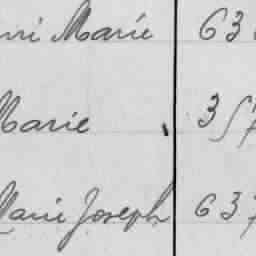 Marie 63
Marie 357
Marie Joseph 637